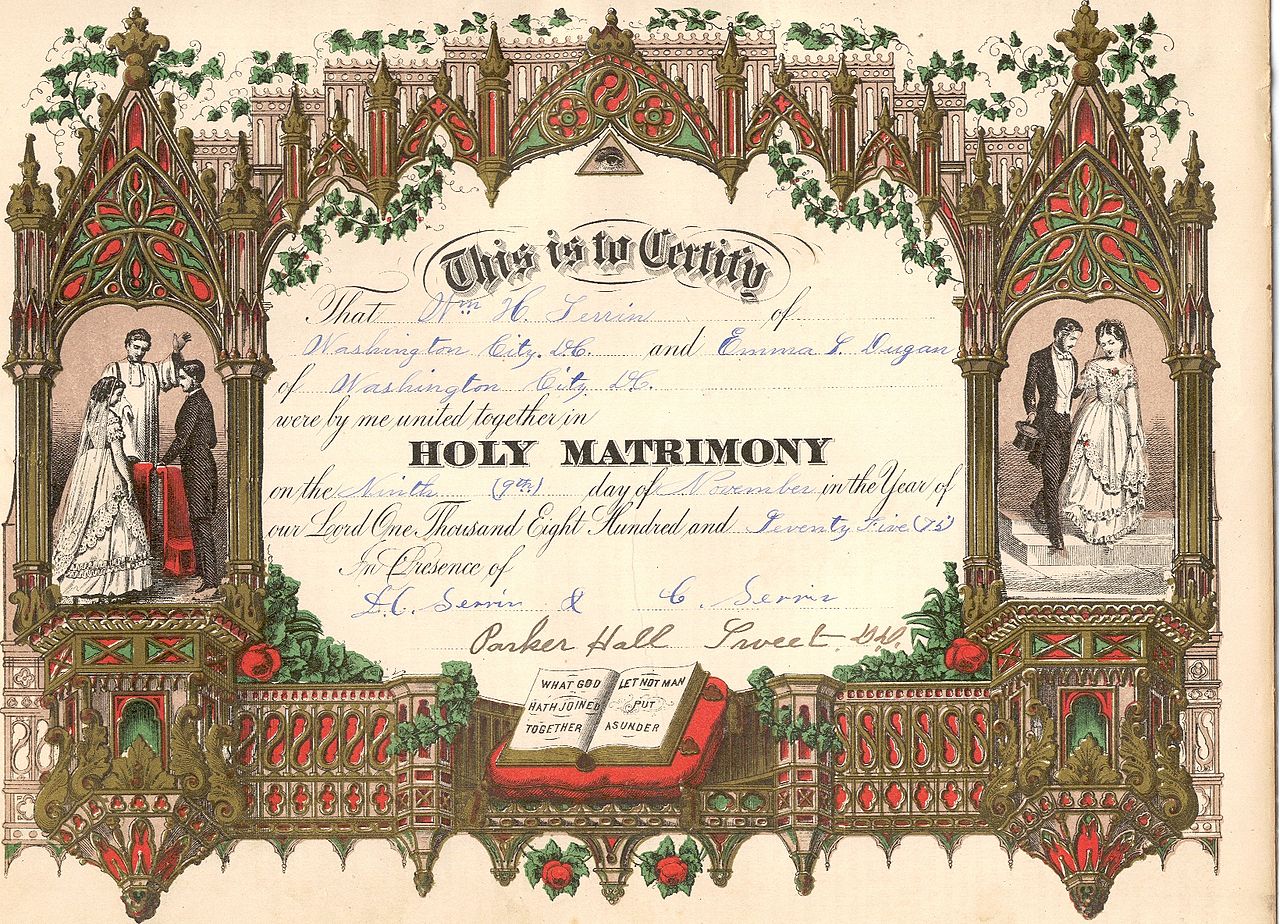 This is to Certify
That Wm H. Serrin of
Washington City. D.C. and Emma L. Dugan
of Washington City. D.C.
were by me united together in
HOLY MATRIMONY
on the Ninth (9th) day of November in the Year of
our Lord One Thousand Eight Hundred and Seventy Five (75)
In Presence of
D.C. Serrin & C. Serrin
Parker Hall Sweet. D.D.
WHAT GOD
HATH JOINED
TOGETHER
LET NOT MAN
PUT
ASUNDER